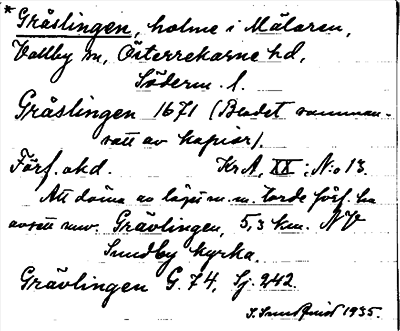 *Gråslingen, holme i Mälaren,
Vallby sn, Österrekarne hd,
Söderm. l.
Gråslingen 1671 (Bladet samman-
satt av kopior).
Förf. okd. KrA, XX; N:o 13.
Att döma av läget m. m. torde förf. ha
avsett nuv. Grävlingen, 5,3 km. NV
Sundby kyrka.
Grävlingen G. 74, Sj. 242.
S. Sundquist 1935.